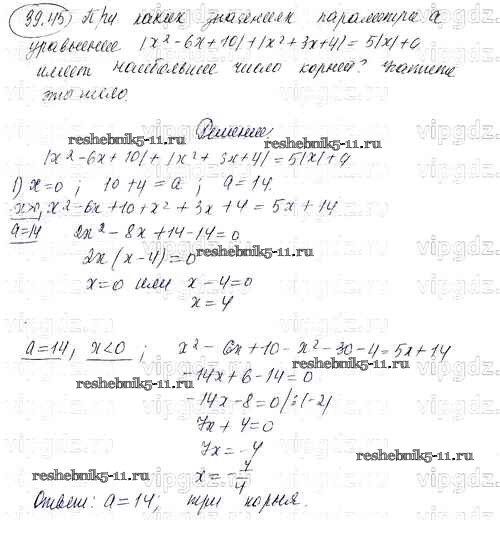 39.45) При каких значениях параметра а
уравнение |x²-6x+10|+|x²+3x+4|=5|x|+a
имеет наибольшее число корней? Укажите
это число.
Решение:
reshebnik5-11.ru reshebnik5-11.ru
|x²-6x+10|+|x²+3x+4|=5|x|+a
1) x=0; 10+4=a; a=14.
x>0, x²-6x+10+x²+3x+4=5x+14
a=14 2x²-8x+14-14=0
2x(x-4)=0 reshebnik5-11.ru
x=0 или x-4=0
x=4
a=14, x<0; x²-6x+10-x²-30-4=5x+14
reshebnik5-11.ru
-14x+6-14=0
reshebnik5-11.ru
-14x-8=0/:(-2)
7x+4=0
7x=-4
reshebnik5-11.ru x=-7/4 reshebnik5-11.ru
Ответ: a=14; три корня.
vipgdz.ru